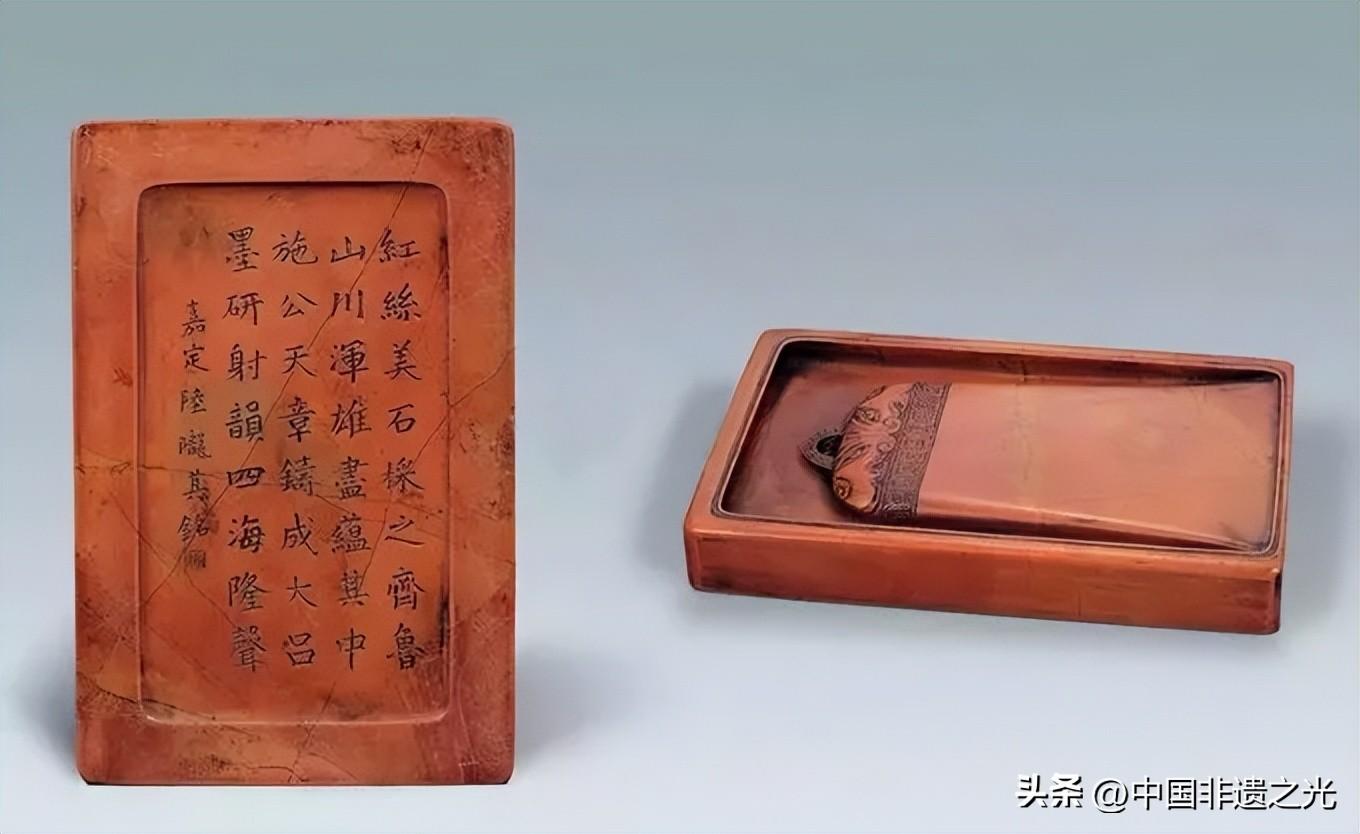 紅絲美石採之齊魯
山川渾雄盡蘊其中
施公天章鑄成大硯
墨研射韻四海隆聲
嘉定陸巃其銘
头条 @中国非遗之光